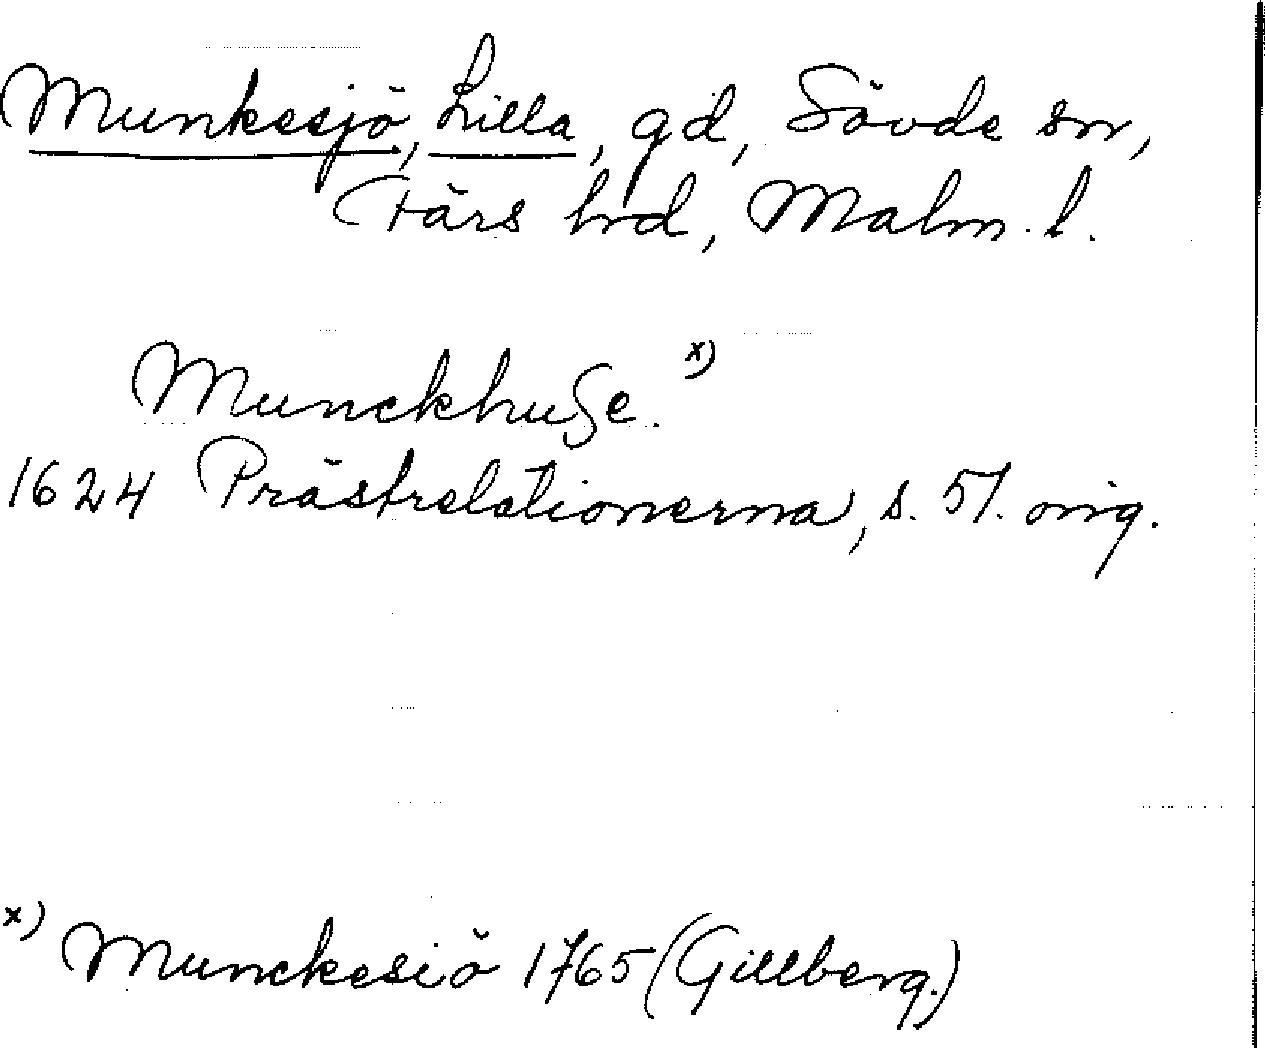 Munkesjö, Lilla, gd, Sövde sn,
Färs hrd, Malm. l.
Munckhuse. x)
1624 Prästrelationerna, s. 57. orig.
x) Munckesiö 1765 (Gillberg.)